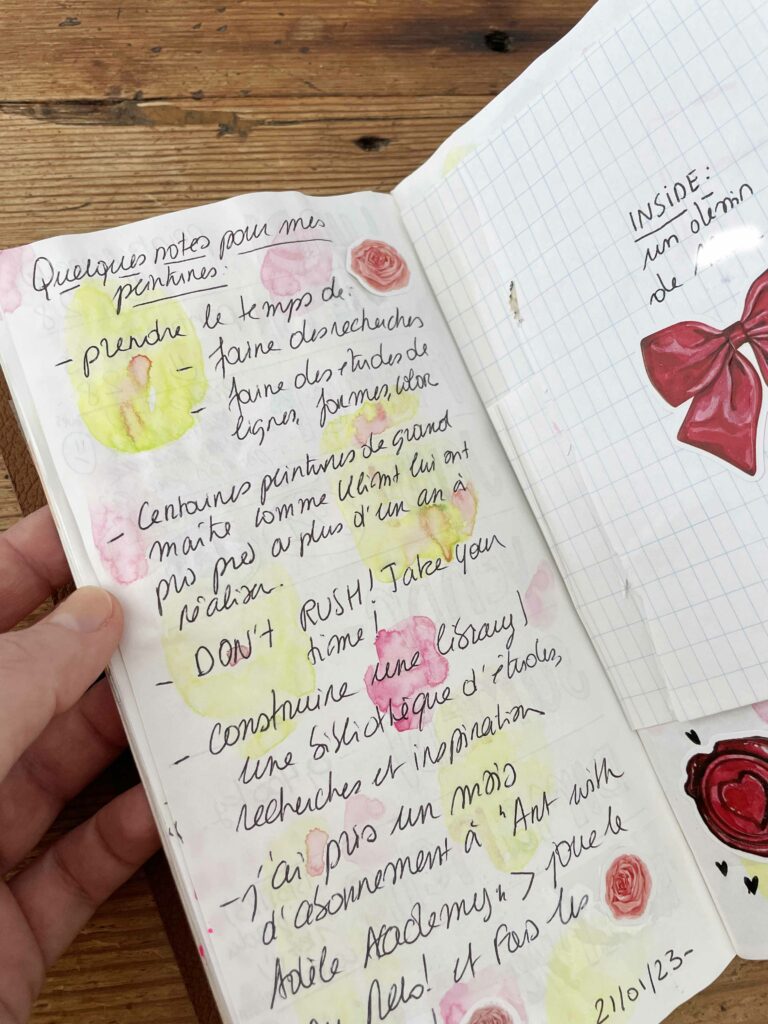 Quelques notes pour mes
peintures:
- prendre le temps de:
- faire des recherches
- faire des études de
lignes, formes, color
- Certaines peintures de grand
maître comme Klimt lui ont
pris plus d'un an à
réaliser.
- DON'T RUSH! Take your
time!
- construire une library/
une bibliothèque d'études,
recherches et inspiration
- j'ai pris un mois
d'abonnement à "Art with
Adèle Academy" > joue le
et fais les
21/01/23-
INSIDE:
un dessin
de